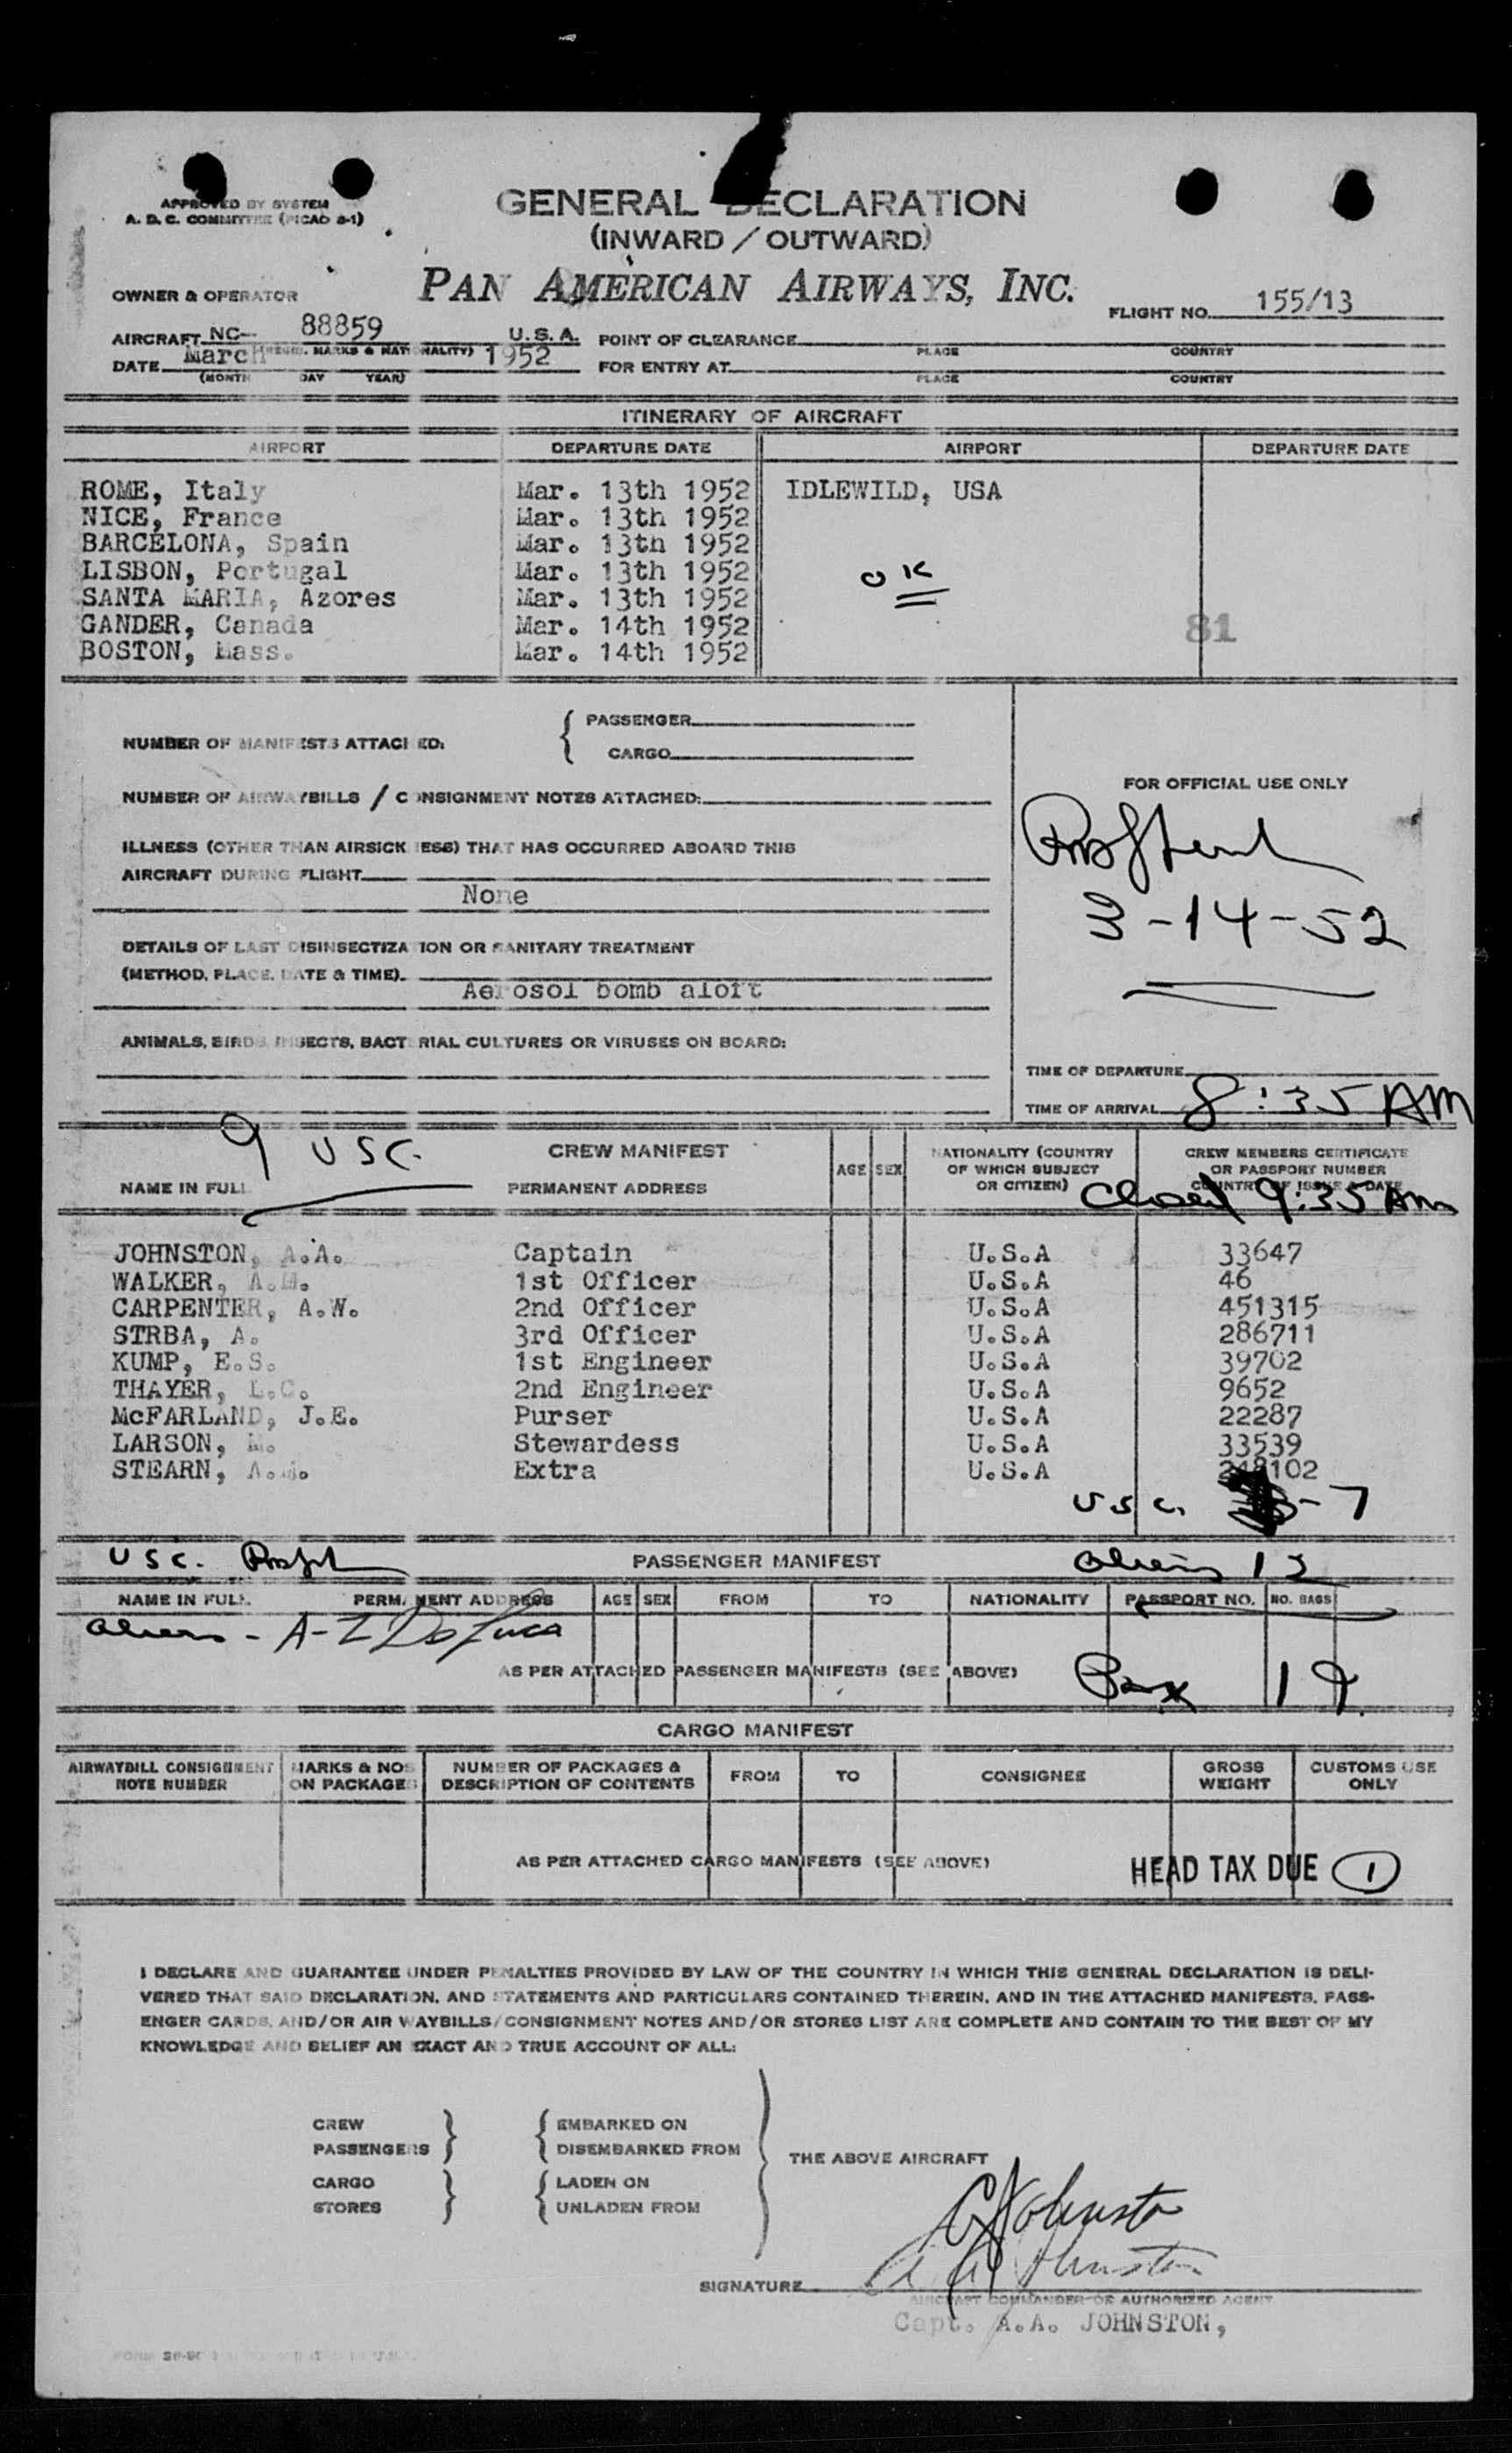 APPROVED BY SYSTEM
A. D. C. COMMITTEE (PICAO 8-1)
GENERAL DECLARATION
(INWARD / OUTWARD)
OWNER & OPERATOR PAN AMERICAN AIRWAYS, INC.
FLIGHT NO. 155/13
AIRCRAFT NC- 88859 U.S.A. POINT OF CLEARANCE
(REGIS. MARKS & NATIONALITY) PLACE COUNTRY
DATE March 1952 FOR ENTRY AT
(MONTH DAY YEAR) PLACE COUNTRY
ITINERARY OF AIRCRAFT
AIRPORT DEPARTURE DATE AIRPORT DEPARTURE DATE
ROME, Italy Mar. 13th 1952 IDLEWILD, USA
NICE, France Mar. 13th 1952
BARCELONA, Spain Mar. 13th 1952
LISBON, Portugal Mar. 13th 1952 OK
SANTA MARIA, Azores Mar. 13th 1952
GANDER, Canada Mar. 14th 1952 81
BOSTON, Mass. Mar. 14th 1952
NUMBER OF MANIFESTS ATTACHED: PASSENGER
CARGO
NUMBER OF AIRWAYBILLS / CONSIGNMENT NOTES ATTACHED:
ILLNESS (OTHER THAN AIRSICKNESS) THAT HAS OCCURRED ABOARD THIS
AIRCRAFT DURING FLIGHT
None
DETAILS OF LAST DISINSECTIZATION OR SANITARY TREATMENT
(METHOD, PLACE, DATE & TIME).
Aerosol bomb aloft
ANIMALS, BIRDS, INSECTS, BACTERIAL CULTURES OR VIRUSES ON BOARD:
FOR OFFICIAL USE ONLY
3-14-52
TIME OF DEPARTURE
TIME OF ARRIVAL 8:35 AM
9 USC.
CREW MANIFEST
NAME IN FULL PERMANENT ADDRESS AGE SEX NATIONALITY (COUNTRY OF WHICH SUBJECT OR CITIZEN) CREW MEMBERS CERTIFICATE OR PASSPORT NUMBER COUNTRY OF ISSUE & DATE
9:35 AM
JOHNSTON, A.A. Captain U.S.A 33647
WALKER, 1st Officer U.S.A 46
CARPENTER, A.W. 2nd Officer U.S.A 451315
STRBA, A. 3rd Officer U.S.A 286711
KUMP, E.S. 1st Engineer U.S.A 39702
THAYER, L.C. 2nd Engineer U.S.A 9652
McFARLAND, J.E. Purser U.S.A 22287
LARSON, M. Stewardess U.S.A 33539
STEARN, Extra U.S.A 248102
USC. -7
USC. PASSENGER MANIFEST Aliens 12
NAME IN FULL PERMANENT ADDRESS AGE SEX FROM TO NATIONALITY PASSPORT NO. NO. BAGS
Aliens - A-Z DeLuca
AS PER ATTACHED PASSENGER MANIFESTS (SEE ABOVE) Pax 19
CARGO MANIFEST
AIRWAYBILL CONSIGNMENT NOTE NUMBER MARKS & NOS ON PACKAGES NUMBER OF PACKAGES & DESCRIPTION OF CONTENTS FROM TO CONSIGNEE GROSS WEIGHT CUSTOMS USE ONLY
AS PER ATTACHED CARGO MANIFESTS (SEE ABOVE) HEAD TAX DUE 1
I DECLARE AND GUARANTEE UNDER PENALTIES PROVIDED BY LAW OF THE COUNTRY IN WHICH THIS GENERAL DECLARATION IS DELI-
VERED THAT SAID DECLARATION, AND STATEMENTS AND PARTICULARS CONTAINED THEREIN, AND IN THE ATTACHED MANIFESTS, PASS-
ENGER CARDS, AND/OR AIR WAYBILLS/CONSIGNMENT NOTES AND/OR STORES LIST ARE COMPLETE AND CONTAIN TO THE BEST OF MY
KNOWLEDGE AND BELIEF AN EXACT AND TRUE ACCOUNT OF ALL:
CREW EMBARKED ON
PASSENGERS DISEMBARKED FROM
THE ABOVE AIRCRAFT
CARGO LADEN ON
STORES UNLADEN FROM
A A Johnston
SIGNATURE A A Johnston
AIRCRAFT COMMANDER OR AUTHORIZED AGENT
Capt. A.A. JOHNSTON,